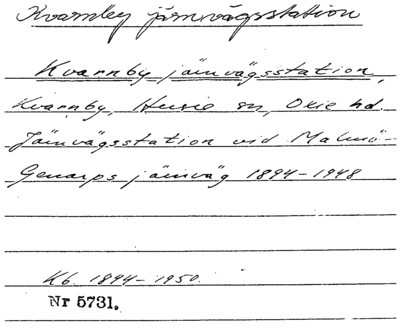 Kvarnby järnvägsstation
Kvarnby järnvägsstation,
Kvarnby, Husie sn, Oxie hd.
Järnvägsstation vid Malmö-
Genarps järnväg 1894-1948
Kb. 1894-1950.
Nr 5731.